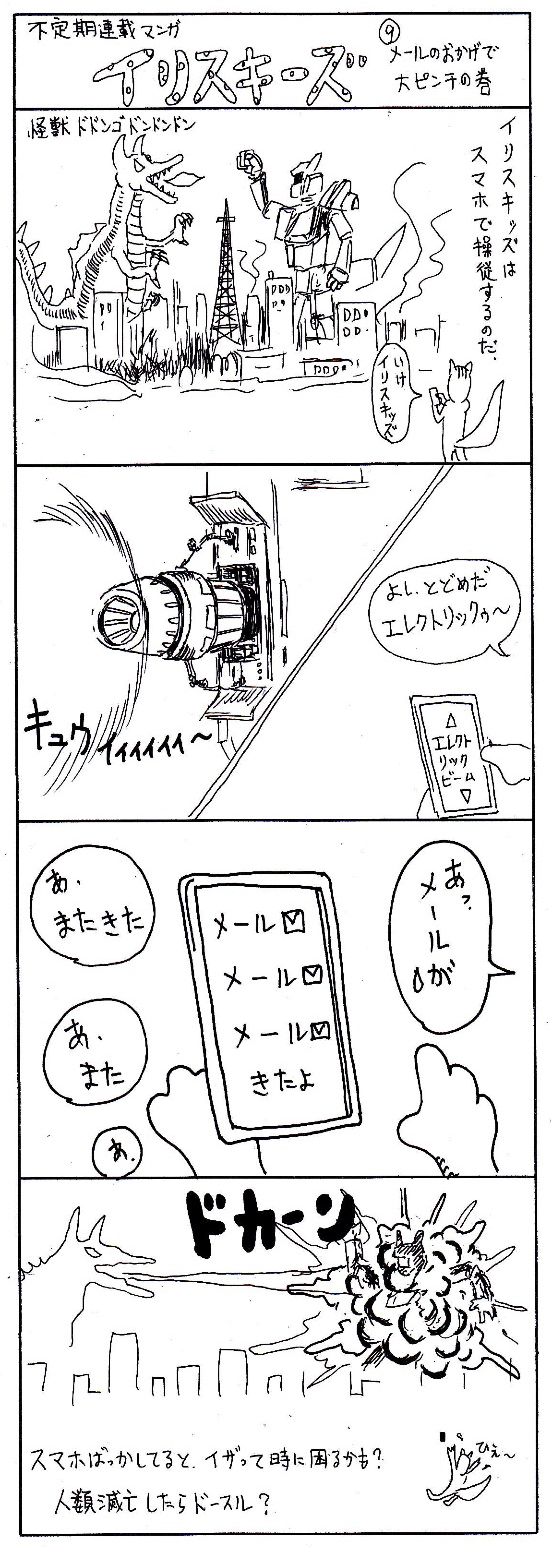 不定期連載マンガ
イリスキーズ
⑨
メールのおかげで
大ピンチの巻
怪獣ドドンゴドンドンドン
イリスキッズは
スマホで操従するのだ.
いけ
イリスキッズ
よし、とどめだ
エレクトリックゥ〜
△
エレクト
リック
ビーム
▽
キュウィィィィィィ〜
あっ、
メールが
あ.
またきた
あ.
また
あ.
メール
メール
メール
きたよ
ドカーン
ひえ〜
スマホばっかしてると、イザって時に困るかも?
人類滅亡したらドースル?